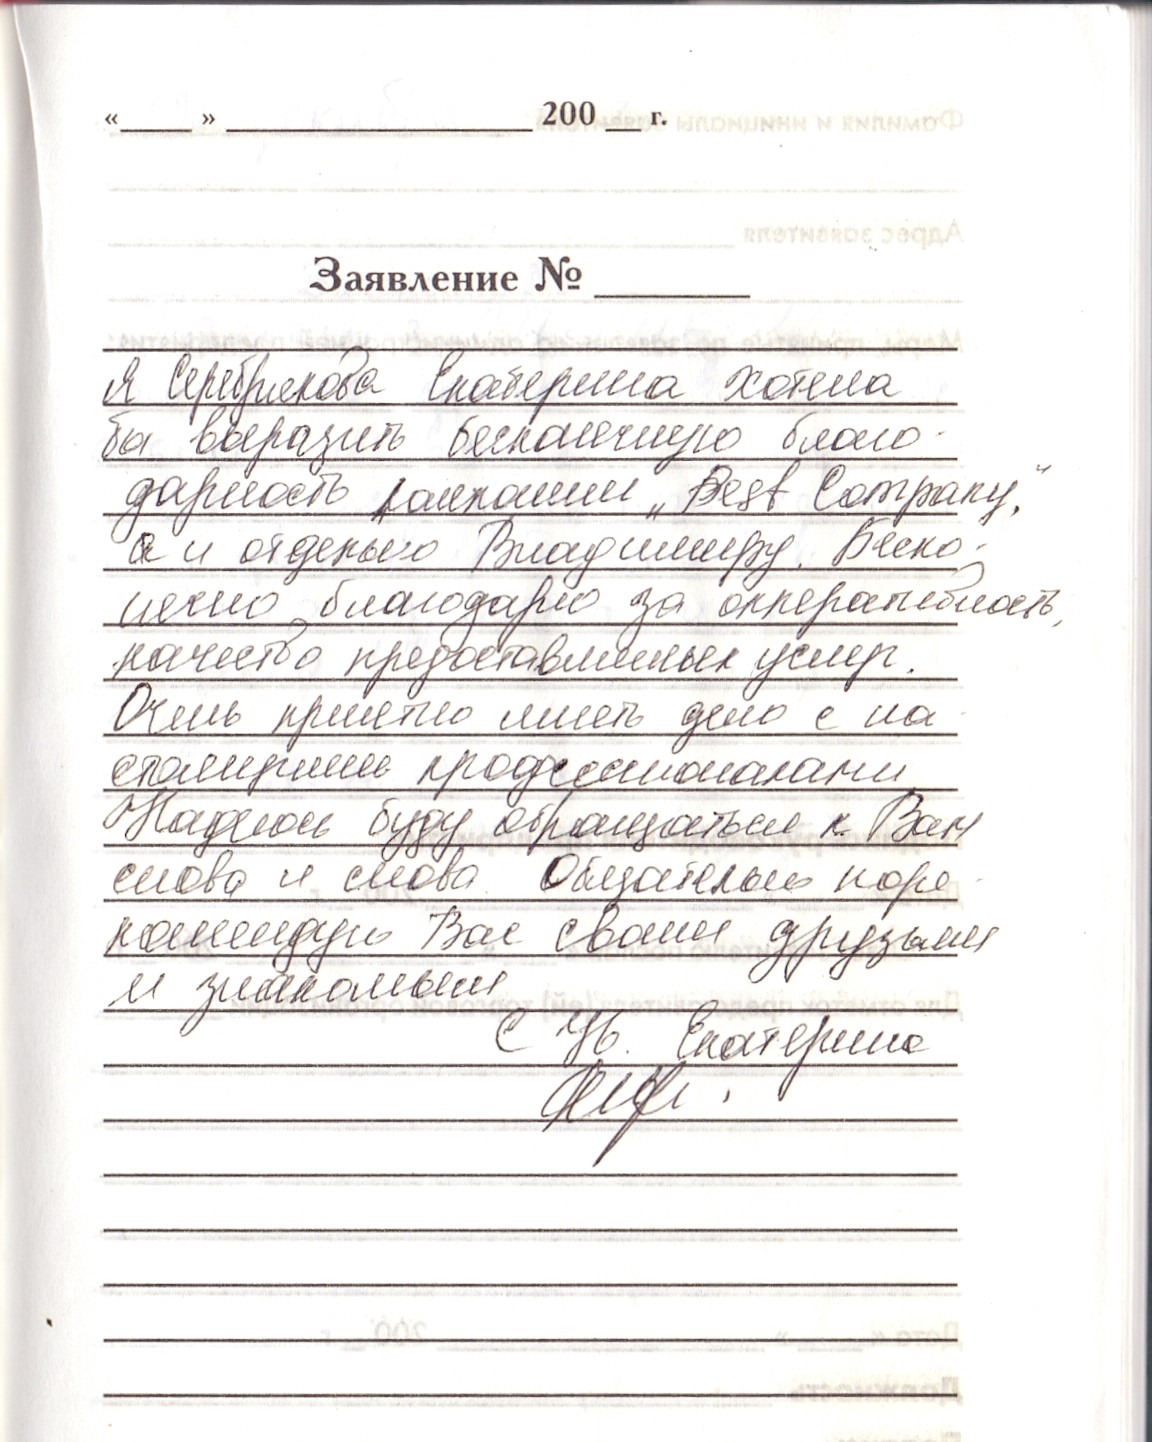 «_____» ____________________ 200 __ г.
Заявление № __________
Я Серебрякова Екатерина хотела
бы выразить бесконечную благо-
дарность компании „Best Company",
а и отдельно Владимиру. Беско-
нечно благодарю за оперативность,
качество предоставленных услуг.
Очень приятно иметь дело с на-
стоящими профессионалами
Надеюсь буду обращаться к Вам
снова и снова. Обязательно поре-
комендую Вас своим друзьям
и знакомым
С Ув. Екатерина